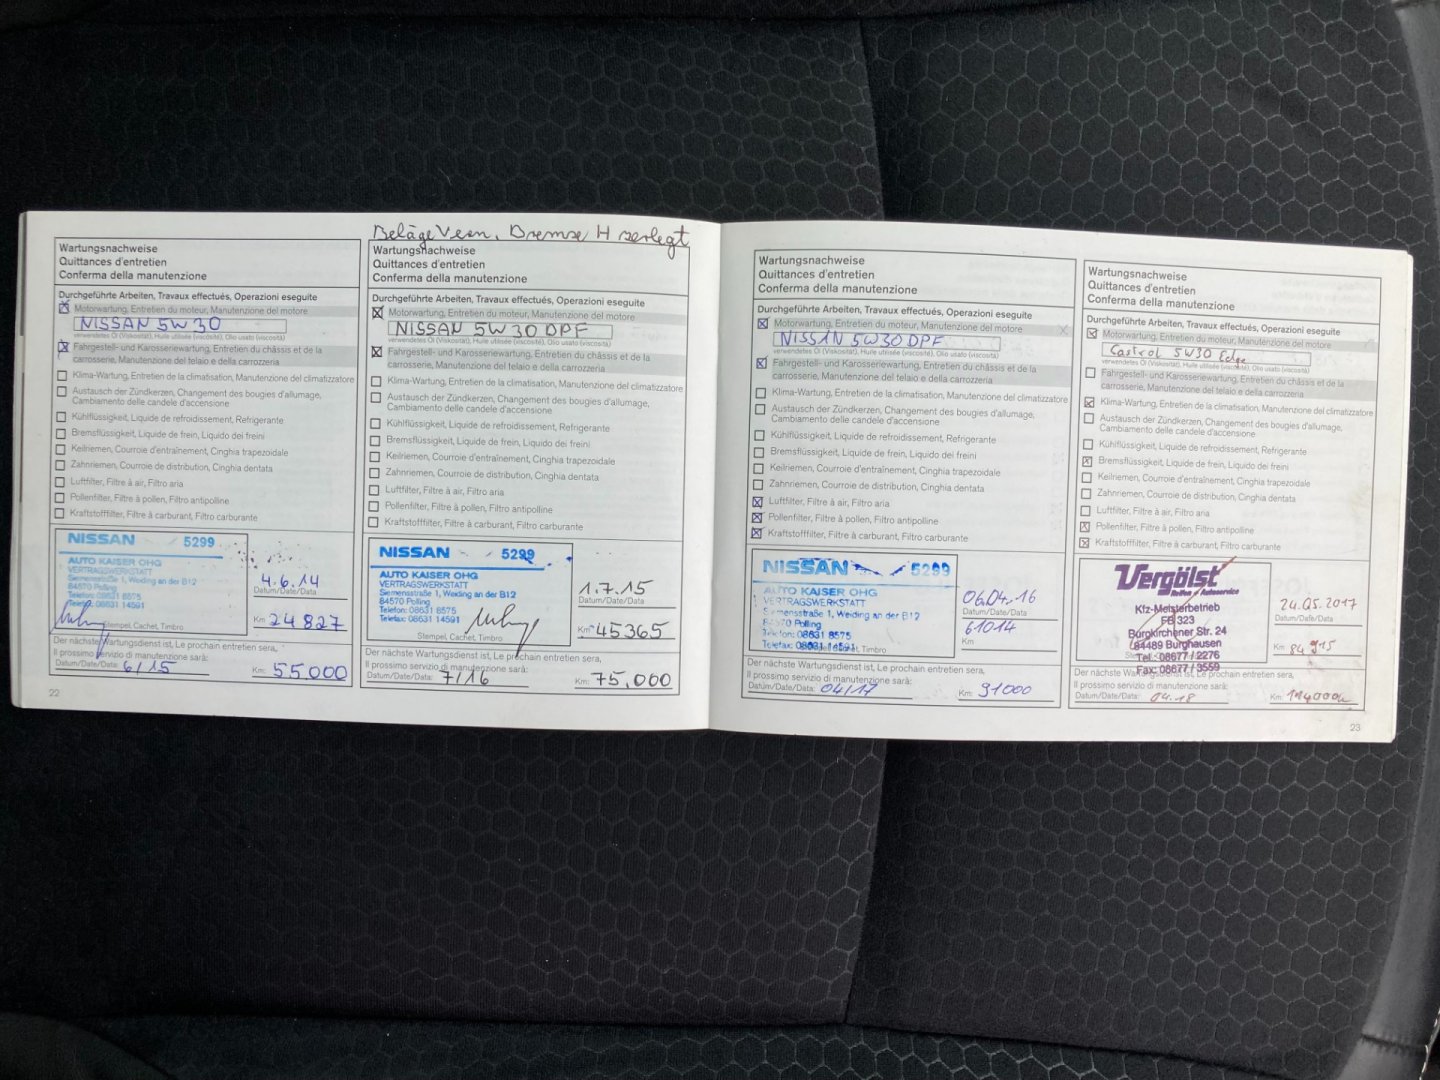 Wartungsnachweise
Quittances d'entretien
Conferma della manutenzione
Durchgeführte Arbeiten, Travaux effectués, Operazioni eseguite
Motorwartung, Entretien du moteur, Manutenzione del motore
NISSAN 5W30
verwendetes Öl (Viskosität), Huile utilisée (viscosité), Olio usato (viscosità)
Fahrgestell- und Karosseriewartung, Entretien du châssis et de la
carrosserie, Manutenzione del telaio e della carrozzeria
Klima-Wartung, Entretien de la climatisation, Manutenzione del climatizzatore
Austausch der Zündkerzen, Changement des bougies d'allumage,
Cambiamento delle candele d'accensione
Kühlflüssigkeit, Liquide de refroidissement, Refrigerante
Bremsflüssigkeit, Liquide de frein, Liquido dei freini
Keilriemen, Courroie d'entraînement, Cinghia trapezoidale
Zahnriemen, Courroie de distribution, Cinghia dentata
Luftfilter, Filtre à air, Filtro aria
Pollenfilter, Filtre à pollen, Filtro antipolline
Kraftstofffilter, Filtre à carburant, Filtro carburante
NISSAN 5299
AUTO KAISER OHG
VERTRAGSWERKSTATT
Siemensstraße 1, Weiding an der B12
84570 Polling
Telefon: 08631 8575
Telefax: 08631 14591
Stempel, Cachet, Timbro
4.6.14
Datum/Date/Data
Km 24827
Der nächste Wartungsdienst ist, Le prochain entretien sera,
Il prossimo servizio di manutenzione sarà:
Datum/Date/Data: 6/15 Km: 55.000
22
Beläge Vern, Bremse H zerlegt
Wartungsnachweise
Quittances d'entretien
Conferma della manutenzione
Durchgeführte Arbeiten, Travaux effectués, Operazioni eseguite
Motorwartung, Entretien du moteur, Manutenzione del motore
NISSAN 5W30 DPF
verwendetes Öl (Viskosität), Huile utilisée (viscosité), Olio usato (viscosità)
Fahrgestell- und Karosseriewartung, Entretien du châssis et de la
carrosserie, Manutenzione del telaio e della carrozzeria
Klima-Wartung, Entretien de la climatisation, Manutenzione del climatizzatore
Austausch der Zündkerzen, Changement des bougies d'allumage,
Cambiamento delle candele d'accensione
Kühlflüssigkeit, Liquide de refroidissement, Refrigerante
Bremsflüssigkeit, Liquide de frein, Liquido dei freini
Keilriemen, Courroie d'entraînement, Cinghia trapezoidale
Zahnriemen, Courroie de distribution, Cinghia dentata
Luftfilter, Filtre à air, Filtro aria
Pollenfilter, Filtre à pollen, Filtro antipolline
Kraftstofffilter, Filtre à carburant, Filtro carburante
NISSAN 5299
AUTO KAISER OHG
VERTRAGSWERKSTATT
Siemensstraße 1, Weiding an der B12
84570 Polling
Telefon: 08631 8575
Telefax: 08631 14591
Stempel, Cachet, Timbro
1.7.15
Datum/Date/Data
Km 45365
Der nächste Wartungsdienst ist, Le prochain entretien sera,
Il prossimo servizio di manutenzione sarà:
Datum/Date/Data: 7/16 Km: 75.000
Wartungsnachweise
Quittances d'entretien
Conferma della manutenzione
Durchgeführte Arbeiten, Travaux effectués, Operazioni eseguite
Motorwartung, Entretien du moteur, Manutenzione del motore
NISSAN 5W30 DPF
verwendetes Öl (Viskosität), Huile utilisée (viscosité), Olio usato (viscosità)
Fahrgestell- und Karosseriewartung, Entretien du châssis et de la
carrosserie, Manutenzione del telaio e della carrozzeria
Klima-Wartung, Entretien de la climatisation, Manutenzione del climatizzatore
Austausch der Zündkerzen, Changement des bougies d'allumage,
Cambiamento delle candele d'accensione
Kühlflüssigkeit, Liquide de refroidissement, Refrigerante
Bremsflüssigkeit, Liquide de frein, Liquido dei freini
Keilriemen, Courroie d'entraînement, Cinghia trapezoidale
Zahnriemen, Courroie de distribution, Cinghia dentata
Luftfilter, Filtre à air, Filtro aria
Pollenfilter, Filtre à pollen, Filtro antipolline
Kraftstofffilter, Filtre à carburant, Filtro carburante
NISSAN 5299
AUTO KAISER OHG
VERTRAGSWERKSTATT
Siemensstraße 1, Weiding an der B12
84570 Polling
Telefon: 08631 8575
Telefax: 08631 14591
Timbro
06.04.16
Datum/Date/Data
61014
Km
Der nächste Wartungsdienst ist, Le prochain entretien sera,
Il prossimo servizio di manutenzione sarà:
Datum/Date/Data: 04/17 Km: 91000
Wartungsnachweise
Quittances d'entretien
Conferma della manutenzione
Durchgeführte Arbeiten, Travaux effectués, Operazioni eseguite
Motorwartung, Entretien du moteur, Manutenzione del motore
Castrol 5W30 Edge
verwendetes Öl (Viskosität), Huile utilisée (viscosité), Olio usato (viscosità)
Fahrgestell- und Karosseriewartung, Entretien du châssis et de la
carrosserie, Manutenzione del telaio e della carrozzeria
Klima-Wartung, Entretien de la climatisation, Manutenzione del climatizzatore
Austausch der Zündkerzen, Changement des bougies d'allumage,
Cambiamento delle candele d'accensione
Kühlflüssigkeit, Liquide de refroidissement, Refrigerante
Bremsflüssigkeit, Liquide de frein, Liquido dei freini
Keilriemen, Courroie d'entraînement, Cinghia trapezoidale
Zahnriemen, Courroie de distribution, Cinghia dentata
Luftfilter, Filtre à air, Filtro aria
Pollenfilter, Filtre à pollen, Filtro antipolline
Kraftstofffilter, Filtre à carburant, Filtro carburante
Vergölst
Reifen + Autoservice
Kfz-Meisterbetrieb
FB 323
Burgkirchener Str. 24
84489 Burghausen
Tel.: 08677 / 2276
Fax: 08677 / 3559
24.05.2017
Datum/Date/Data
Km 84 915
Der nächste Wartungsdienst ist, Le prochain entretien sera,
Il prossimo servizio di manutenzione sarà:
Datum/Date/Data: 04.18 Km:
23